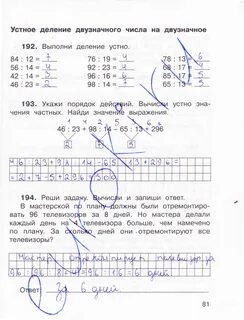 Устное деление двузначного числа на двузначное
192. Выполни деление устно.
84 : 12 = 7 76 : 19 = 4 78 : 13 = 6
56 : 14 = 4 92 : 23 = 4 85 : 17 = 5
42 : 14 = 3 96 : 16 = 6 68 : 17 = 4
46 : 23 = 2 98 : 14 = 7 65 : 13 = 5
193. Укажи порядок действий. Вычисли устно зна-
чения частных. Найди значение выражения.
46 : 23 + 98 : 14 − 65 : 13 + 296
46 : 23 + 98 : 14 - 65 : 13 + 296 =
= 2 + 7 - 5 + 296 = 300
194. Реши задачу. Вычисли и запиши ответ.
В мастерской по плану должны были отремонтиро-
вать 96 телевизоров за 8 дней. Но мастера делали
каждый день на 4 телевизора больше, чем намечено
по плану. За сколько дней они отремонтируют все
телевизоры?
96 : (96 : 8 + 4) = 96 : 16 = 6 дней
Ответ: За 6 дней
81